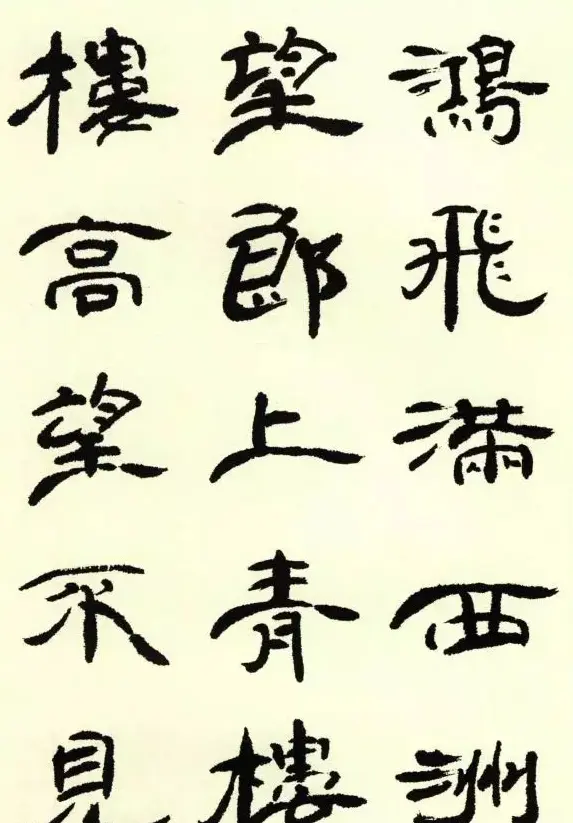 鴻飛滿西洲
望郎上青樓
樓高望不見